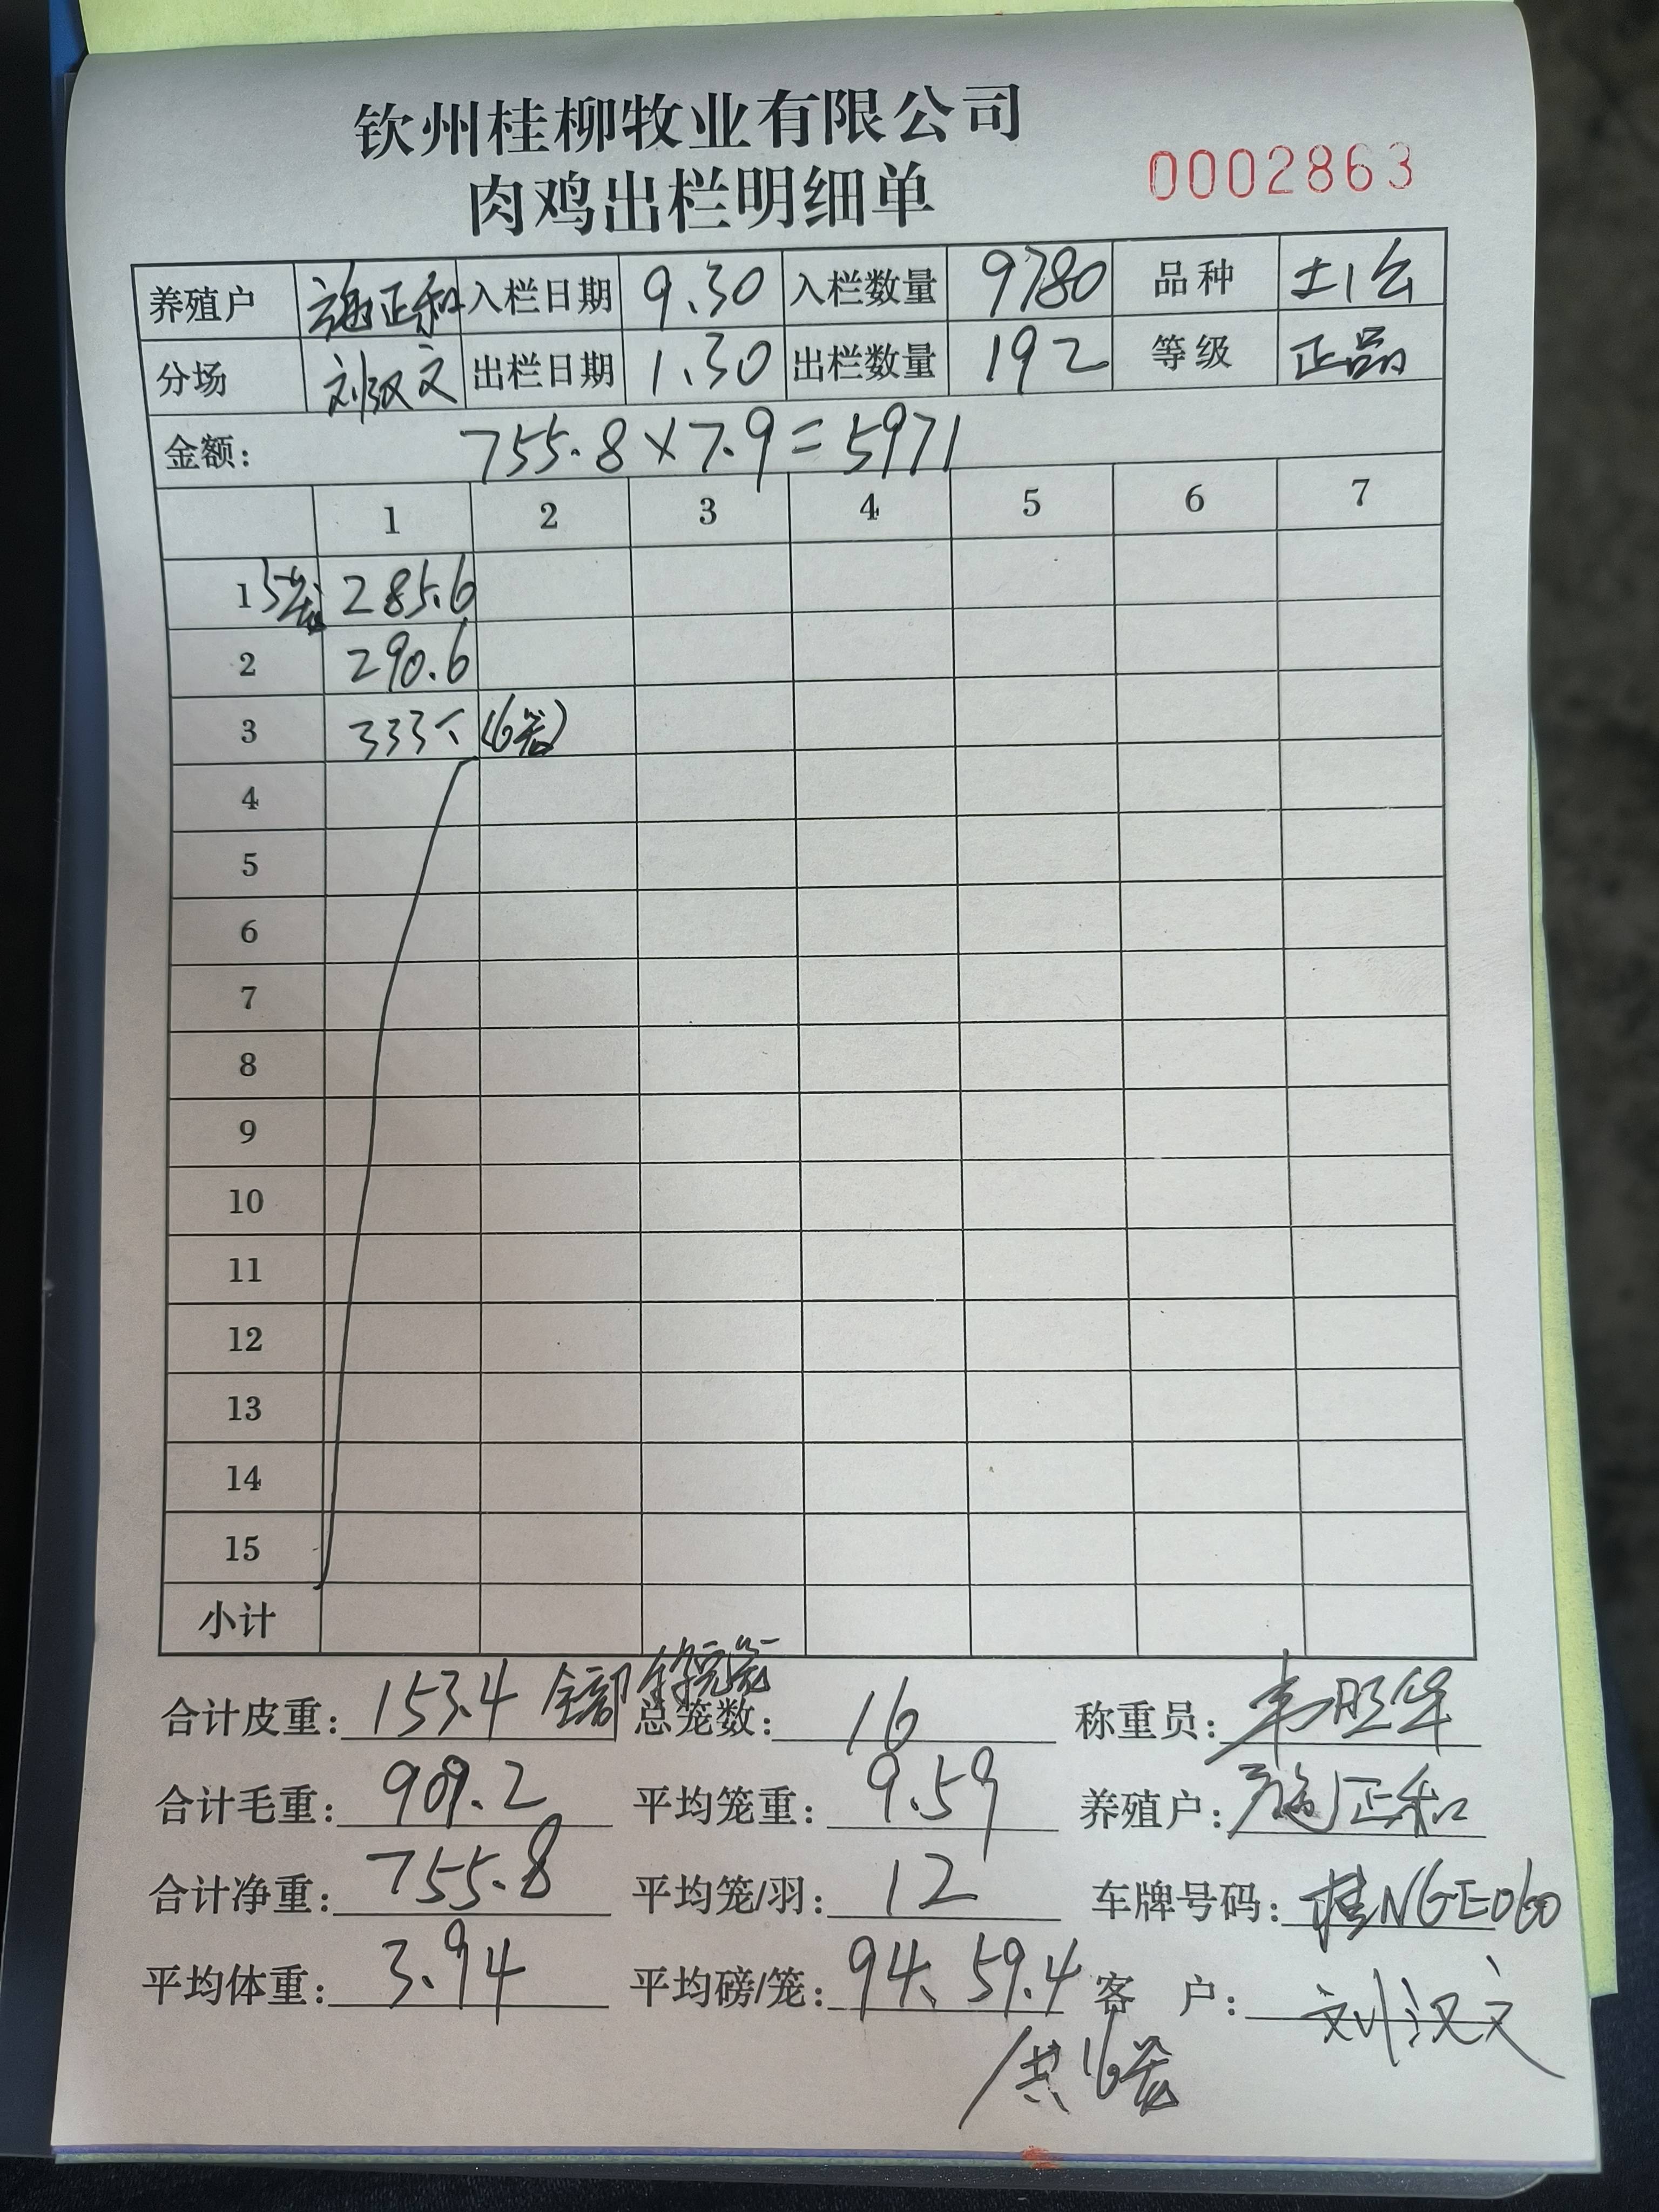 钦州桂柳牧业有限公司
肉鸡出栏明细单
0002863
养殖户 施正和 入栏日期 9.30 入栏数量 9780 品种 土1公
分场 刘汉文 出栏日期 1.30 出栏数量 192 等级 正品
金额: 755.8×7.9=5971
1 2 3 4 5 6 7
1 5笼 285.6
2 290.6
3 333 (6笼)
4
5
6
7
8
9
10
11
12
13
14
15
小计
合计皮重: 153.4 全部 总笼数: 16 称重员: 韦旺华
合计毛重: 909.2 平均笼重: 9.59 养殖户: 施正和
合计净重: 755.8 平均笼/羽: 12 车牌号码: 桂NGE060
平均体重: 3.94 平均磅/笼: 94、59.4 客户: 刘汉文
共16笼